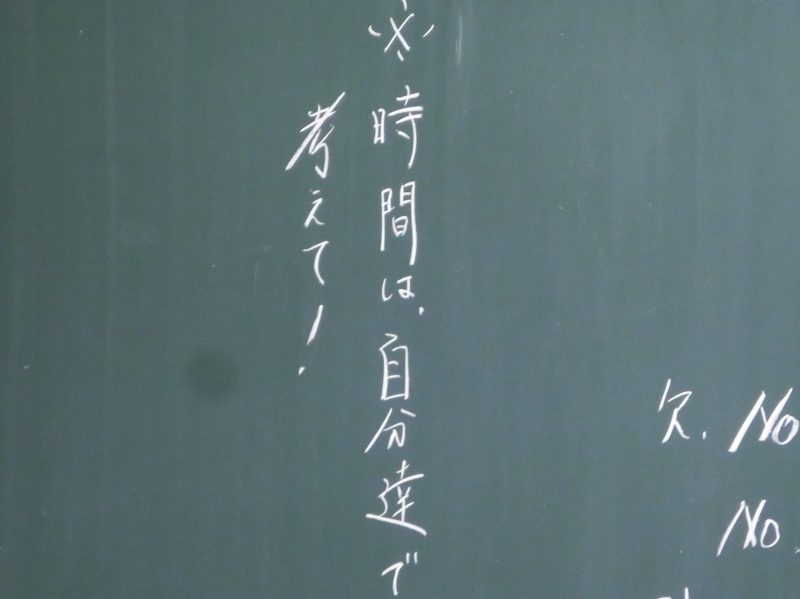 欠. No
No.
※時間は、自分達で
考えて!